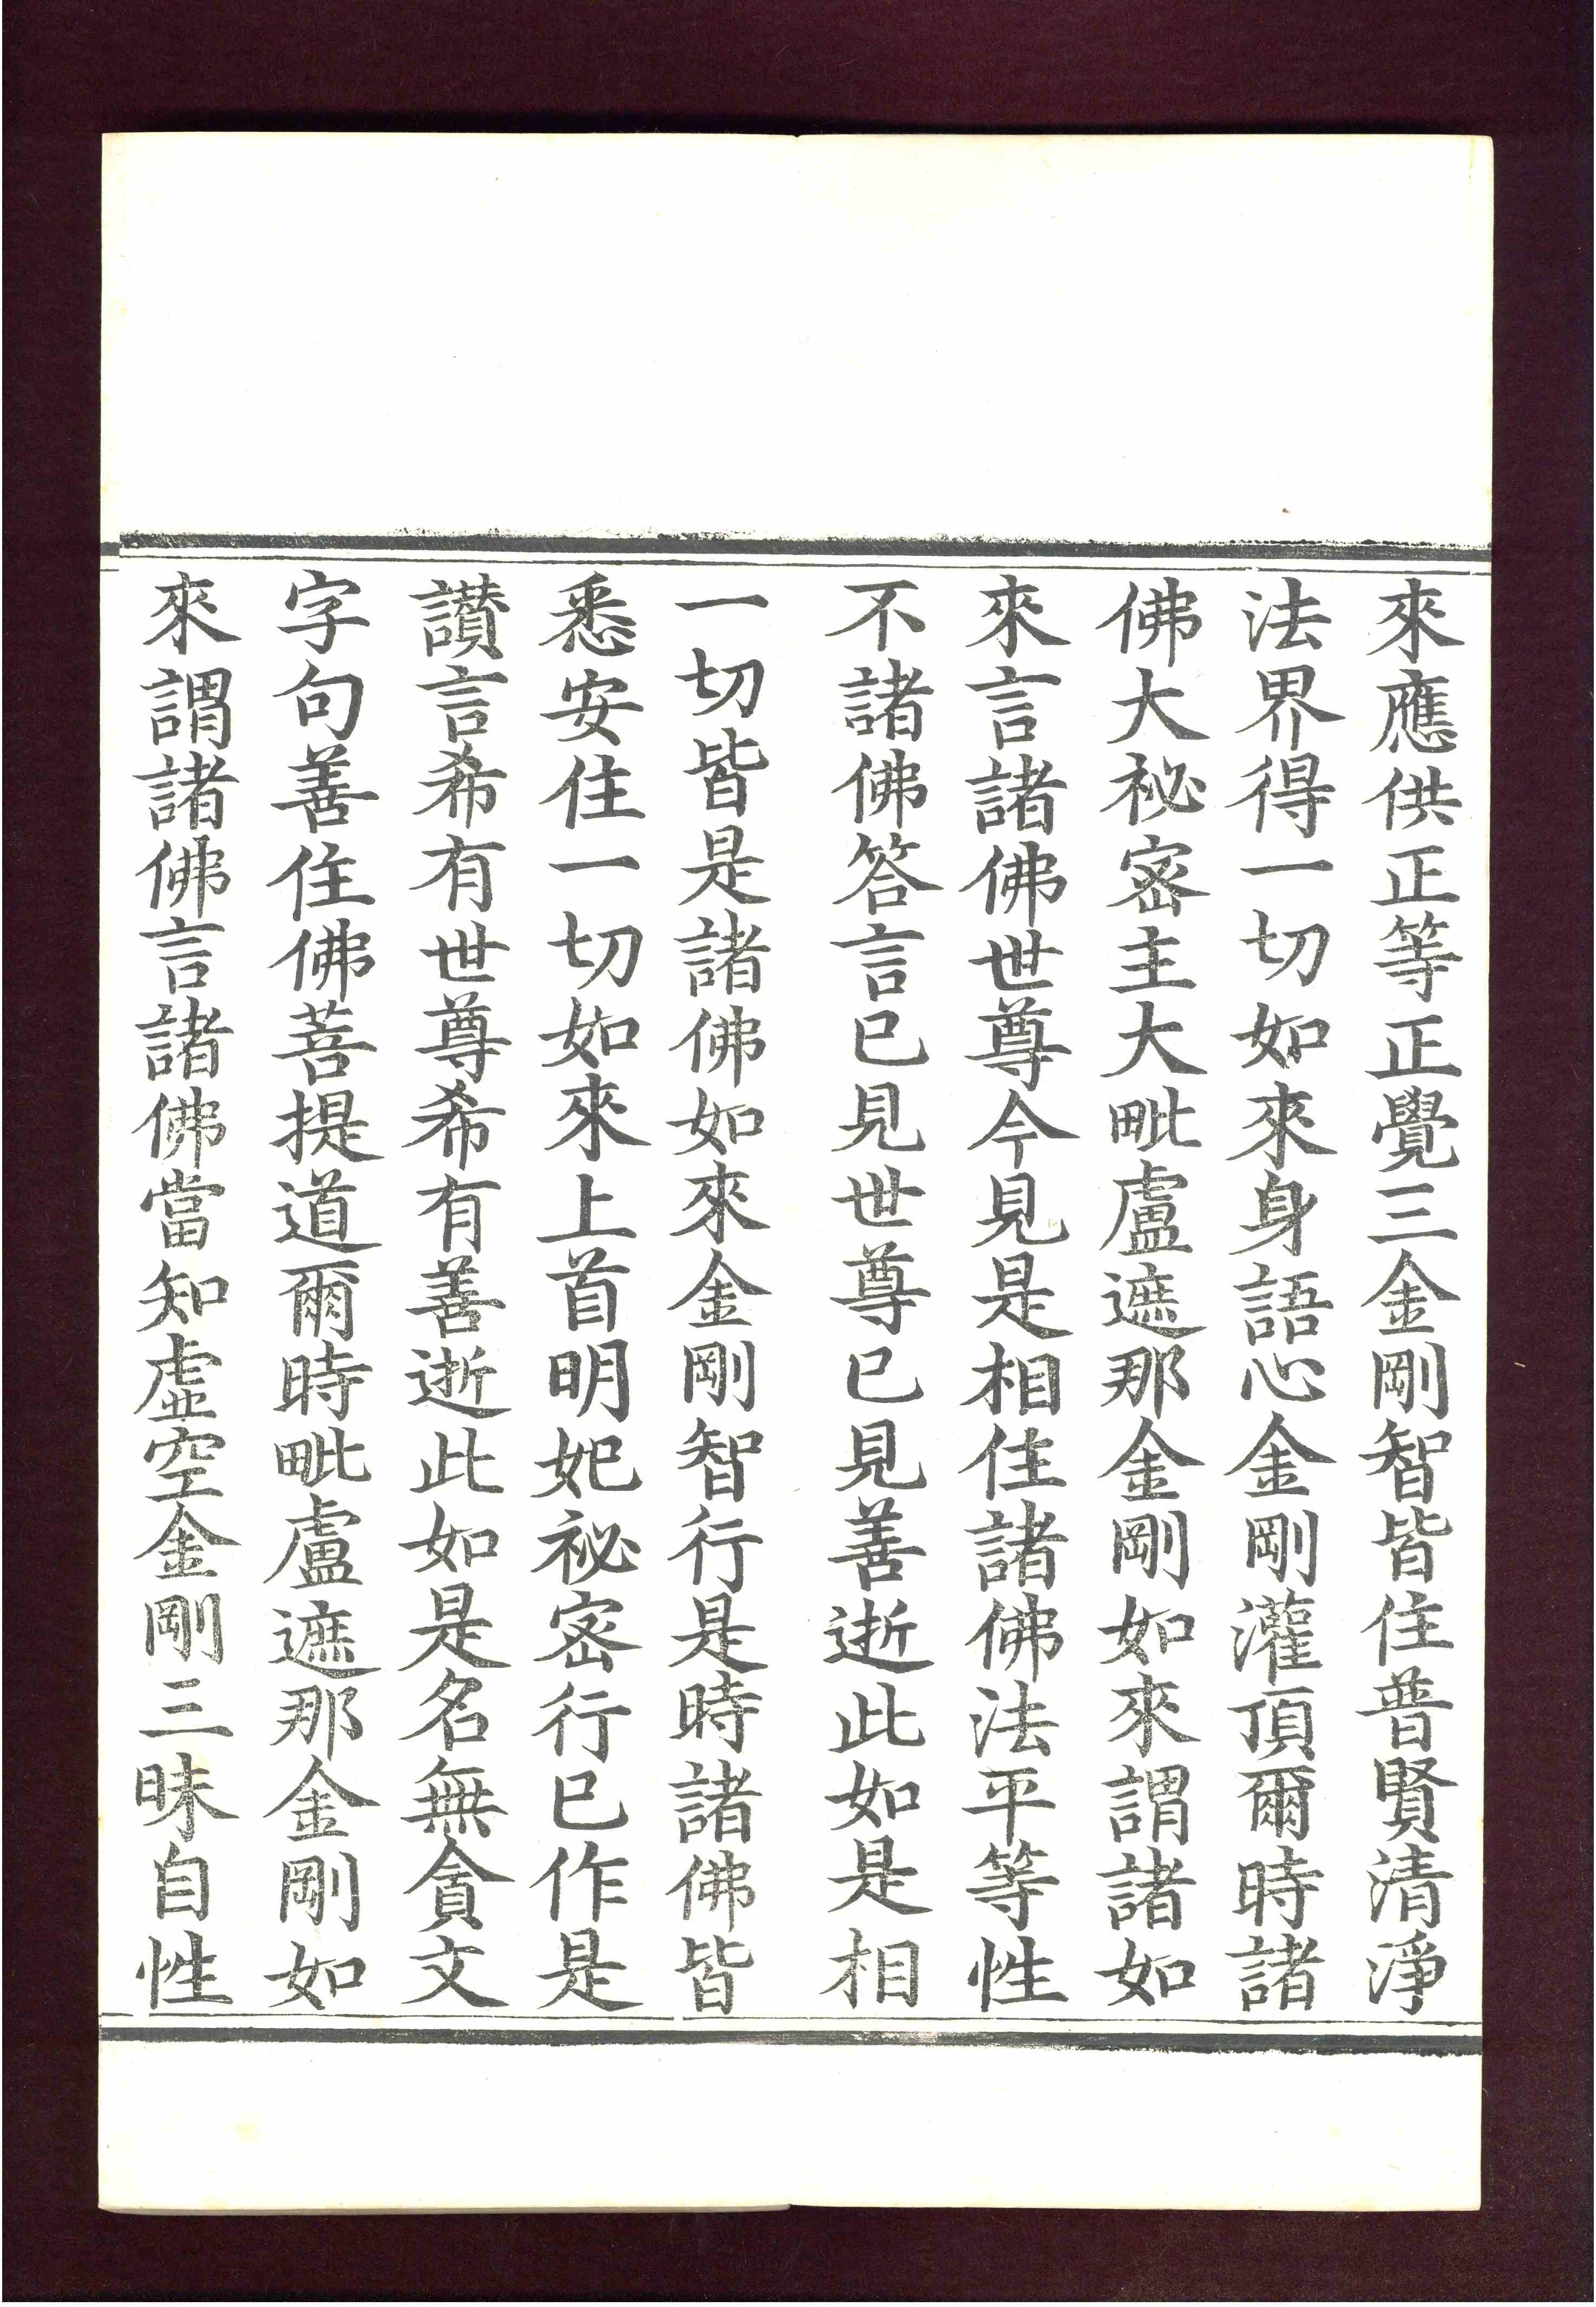 來應供正等正覺三金剛智皆住普賢清淨
法界得一切如來身語心金剛灌頂爾時諸
佛大祕密主大毗盧遮那金剛如來謂諸如
來言諸佛世尊今見是相住諸佛法平等性
不諸佛答言已見世尊已見善逝此如是相
一切皆是諸佛如來金剛智行是時諸佛皆
悉安住一切如來上首明妃祕密行已作是
讚言希有世尊希有善逝此如是名無貪文
字句善住佛菩提道爾時毗盧遮那金剛如
來謂諸佛言諸佛當知虛空金剛三昧自性